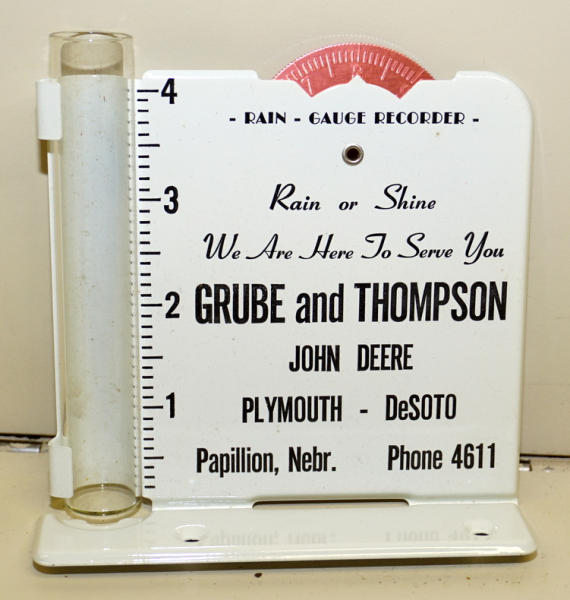 - RAIN - GAUGE RECORDER -
4
3
2
1
Rain or Shine
We Are Here To Serve You
GRUBE and THOMPSON
JOHN DEERE
PLYMOUTH - DeSOTO
Papillion, Nebr. Phone 4611